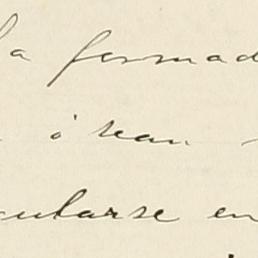 la formad
ó sean
cularse en